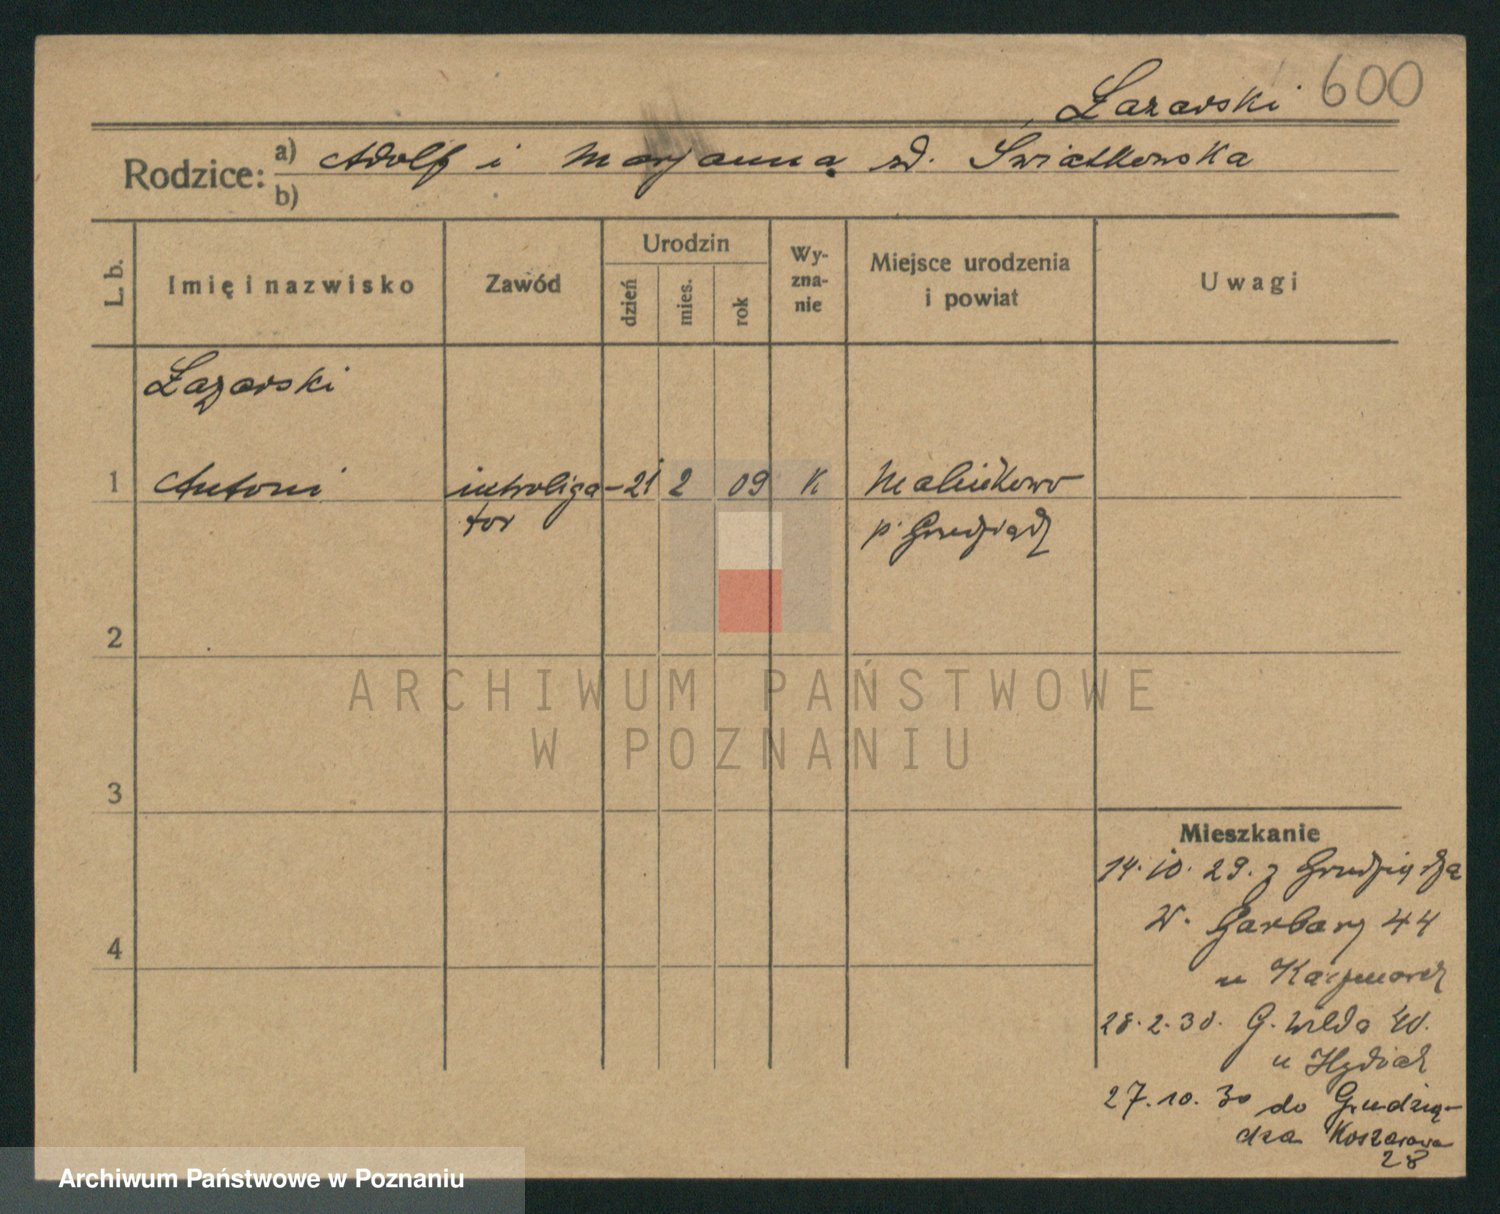 Łazarski 600
Rodzice: a) Adolf i Marjanna zd. Świątkowska
b)
L. b. Imię i nazwisko Zawód Urodzin dzień mies. rok Wy-zna-nie Miejsce urodzenia i powiat Uwagi
Łazarski
1 Antoni introliga- 21 2 09 K
tor p. Grudziądz
2
ARCHIWUM PAŃSTWOWE
W POZNANIU
3
Mieszkanie
14.10.29. z Grudziądza
W. Garbary 44
4
u Kaczmarek
28.2.30. G. Wilda 40.
u
27.10.30 do Grudzią-
dza Koszarowa
28
Archiwum Państwowe w Poznaniu